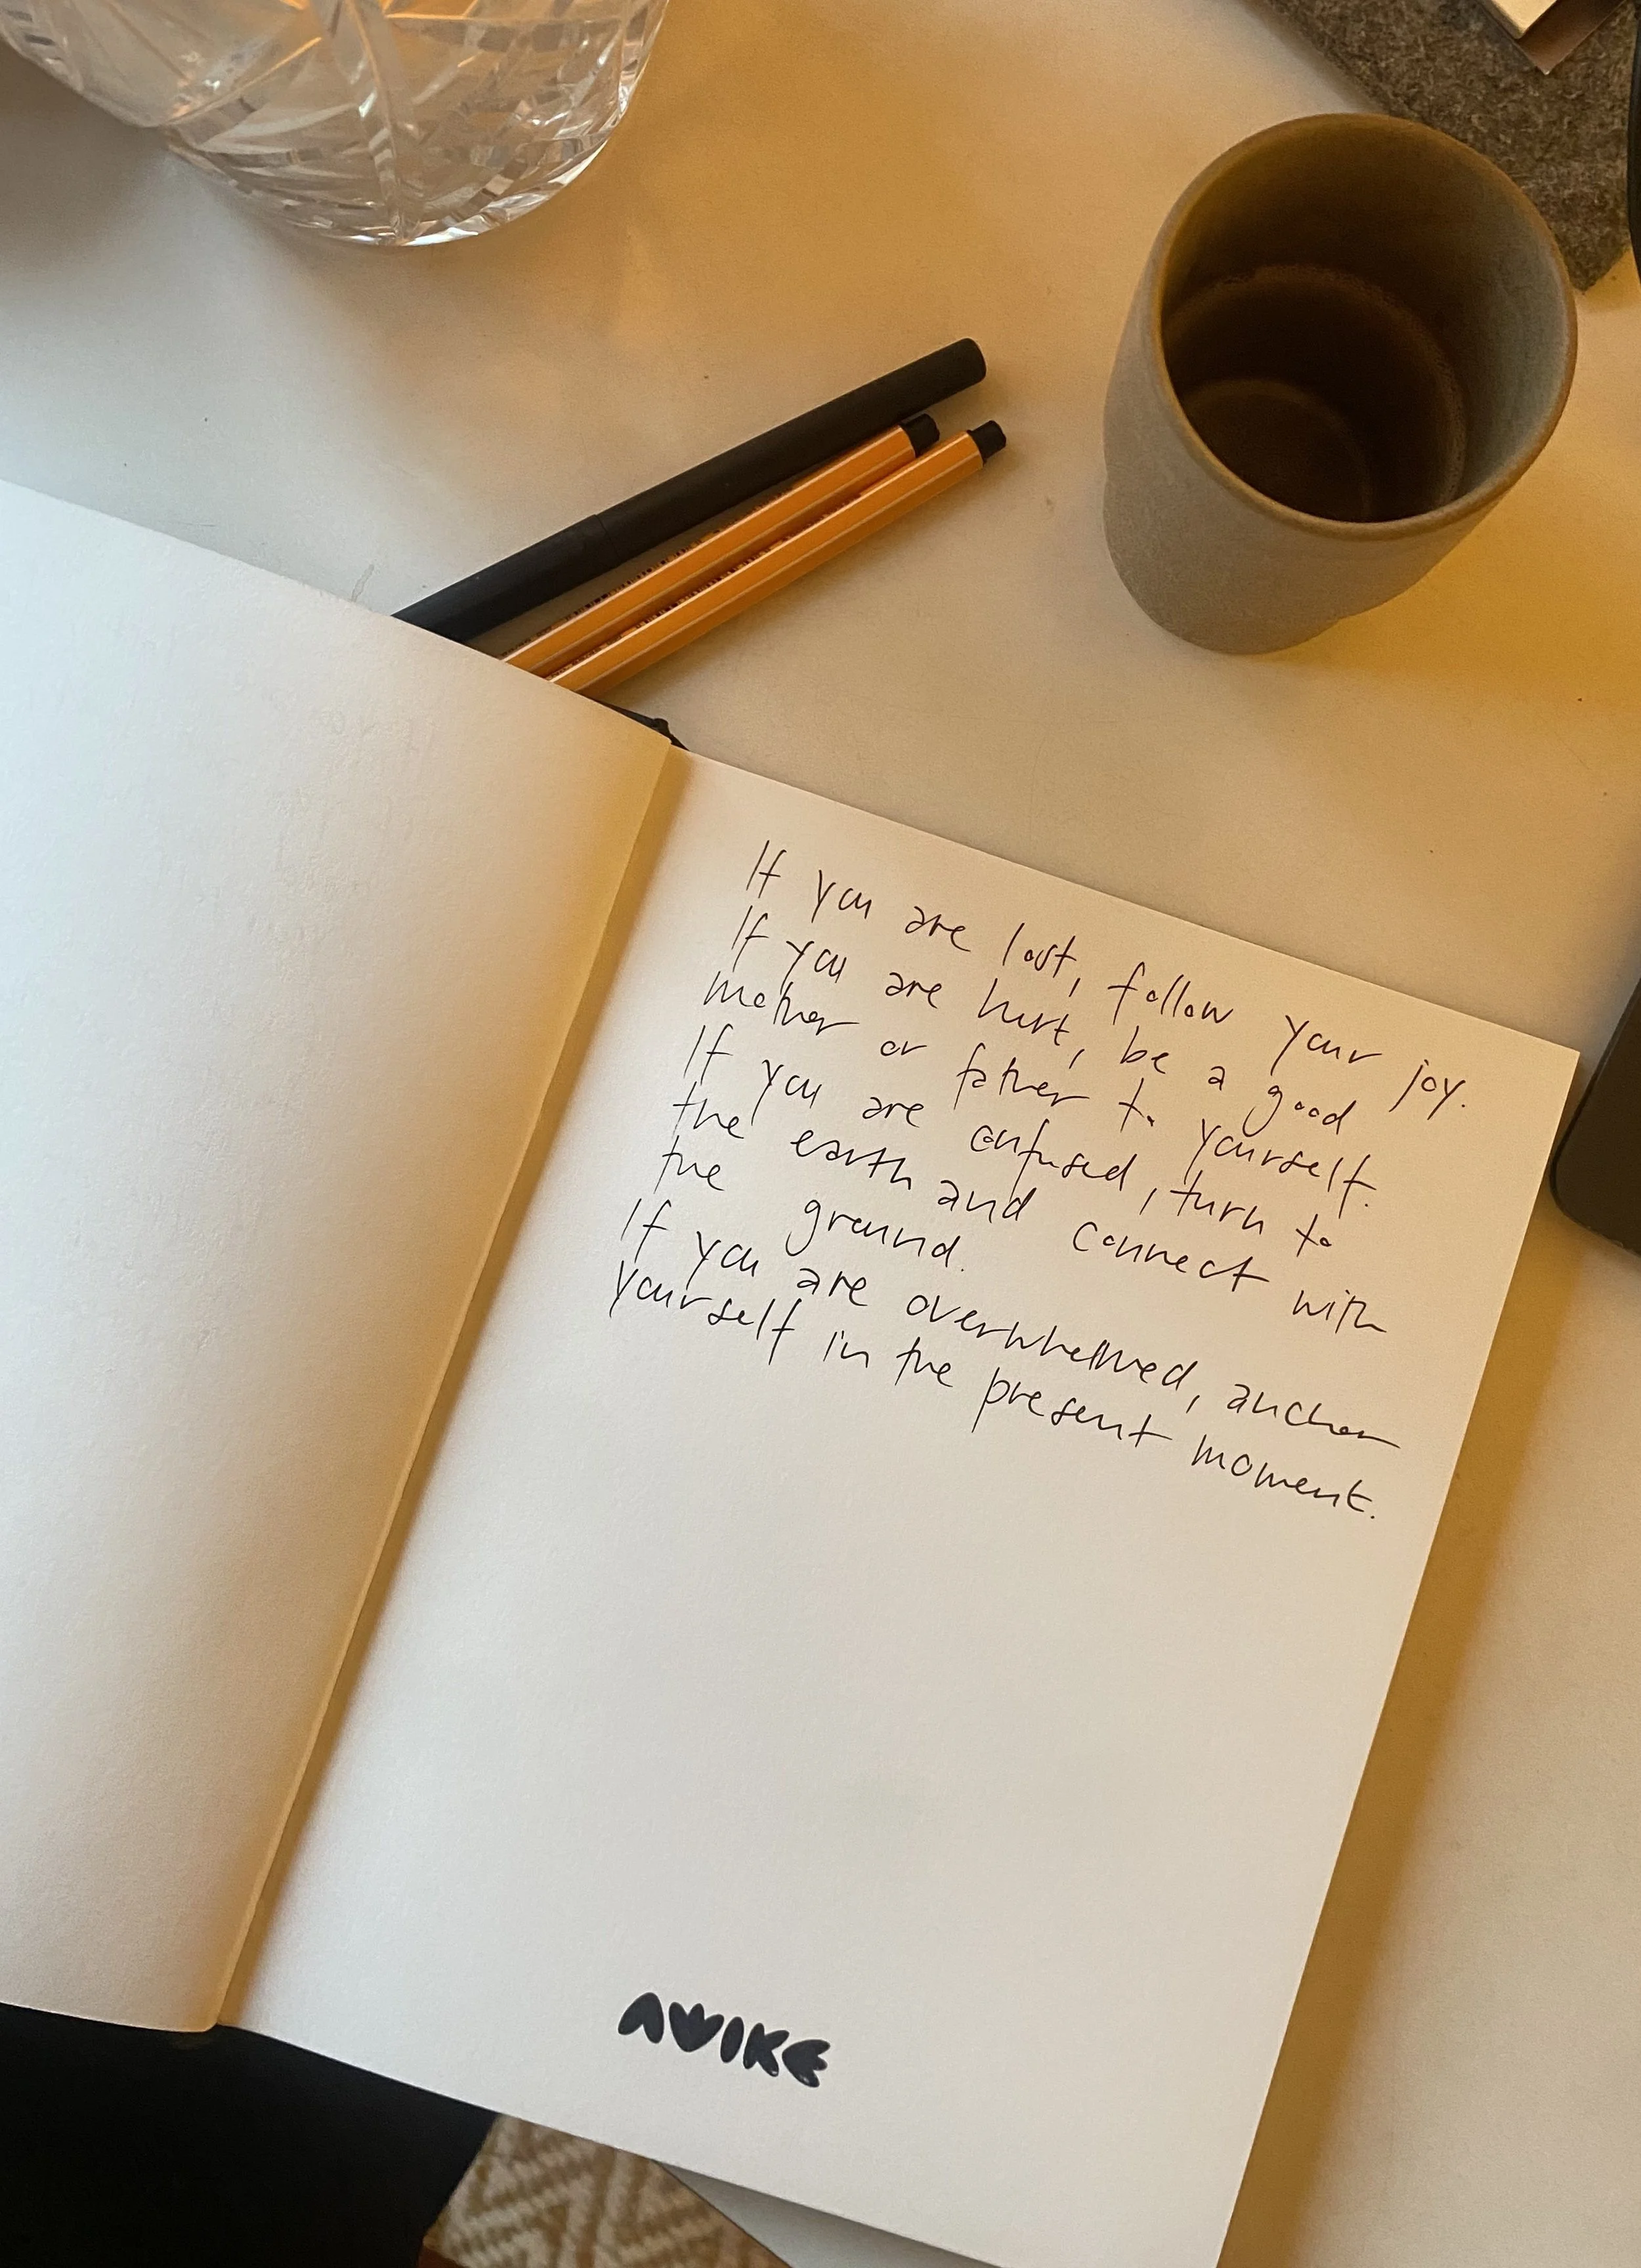 If you are lost, follow your joy.
If you are hurt, be a good
mother or father to yourself.
If you are confused, turn to
the earth and connect with
the ground.
If you are overwhelmed, anchor
yourself in the present moment.
AWIKE